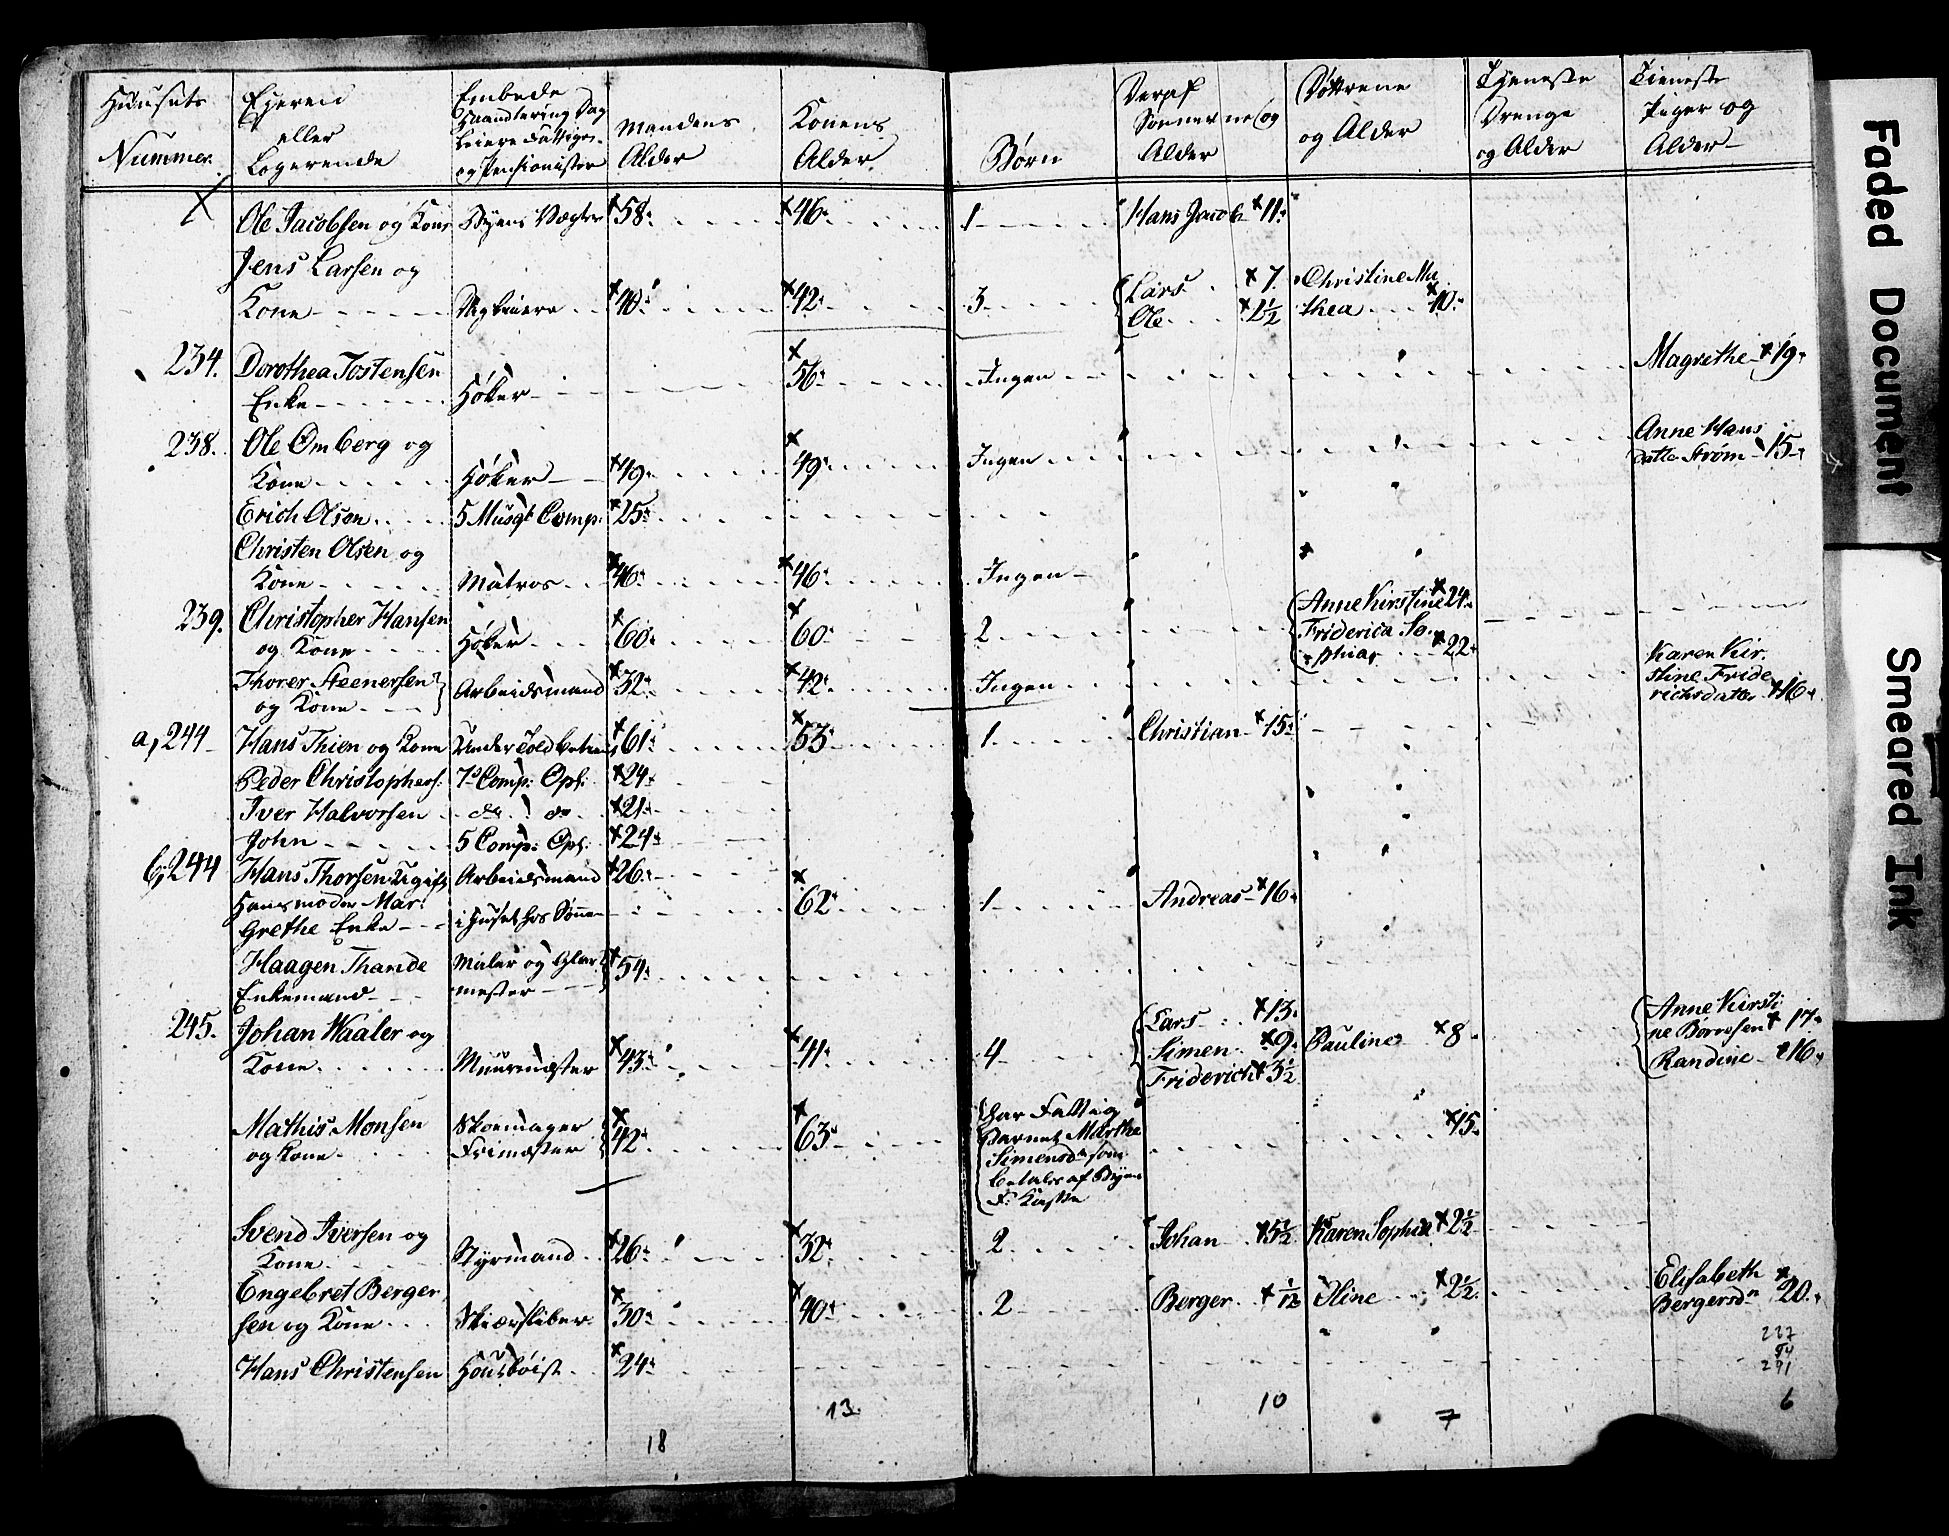 Huusets Nummer. | Ejeren eller Logerende | Embede Haandtering Dag Leiere Fattige og Pensionister | Mandens Alder | Konens Alder | Børn | Deraf Sønnerne og Alder | Døttrene og Alder | Tjeneste Drenge og Alder | Tieneste Piger og Alder
Ole Jacobsen og Kone | Byens Vægter | 58 | 46 | 1 | Hans Jacob 11
Jens Larsen og
Kone | Dagleiere | 40 | 42 | 3 | Lars 7 | Christine Ma
Ole 1½ | thea 10
234. Dorothea Tostensen
Enke | Høker | 56 | Ingen | Magrethe 19
238. Ole Omberg og
Kone | Høker | 49 | 49 | Ingen | Anne Hans
datter Strøm 15
Erich Olsen | 5 Musqt Comp: | 25
Christen Olsen og
Kone | Matros | 46 | 46 | Ingen
239. Christopher Hansen
og Kone | Høker | 60 | 60 | 2 | Anne Kirstine 24
Friderica So
phia 22
Thorer Steenersen
og Kone | Arbeidsmand | 32 | 42 | Ingen | Karen Kir
stine Fride
richsdatter 16
a, 244 Hans Thien og Kone | Under Toldbetien | 61 | 53 | 1 | Christian 15
Peder Christophers. | 7 Comp: Opl: | 24
Iver Halvorsen | do do | 21
John | 5 Comp: Opl: | 24
b, 244 Hans Thorsen Ugift | Arbeidsmand | 26
Hans moder Mar
Grethe Enke | i Huset hos Sønnen | 62 | 1 | Andreas 16
Haagen Thande
Enkemand | Maler og Glar
mester | 54
245. Johan Waaler og
Kone | Muurmester | 43 | 41 | 4 | Lars 13
Simen 9 | Pauline 8
Friderich 3½
Anne Kirsti
ne Borresen 17
Randine 16
Mathis Monsen
og Kone | Skoemager
Frimester | 42 | 63 | har Fattig
Barnet Marthe
Simensdr som
betales af Byens
F. Kasse | 15
Svend Iversen og
Kone | Styrmand | 26 | 32 | 2 | Johan 5½ | Karen Sophia 2½
Engebret Berger
sen og Kone | Skiærsliber | 30 | 40 | 2 | Berger 1/12 | Oline 2½ | Elisabeth
Bergersdr 20
Hans Christensen | Houtboist | 24
237
54
291
18 | 13 | 10 | 7 | 6
Faded Document
Smeared Ink